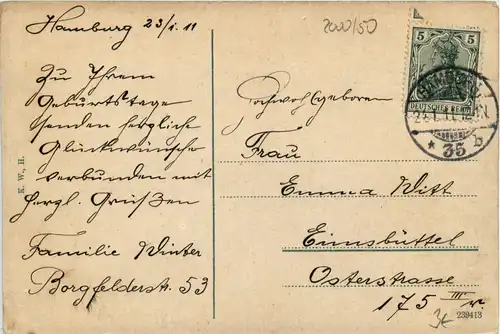 Hamburg 23/1. 11
Zu Ihrem
Geburtstage
senden herzliche
Glückwünsche
verbunden mit
herzl. Grüßen
Familie Winter
Borgfelderstr. 53
K. W., H.
2000/50
5 5
DEUTSCHES REICH
HAMBURG
23.1.11.
* 35 b
Hochwohlgeboren
Frau
Emma Witt
Eimsbüttel
Osterstrasse
175 III r.
239413